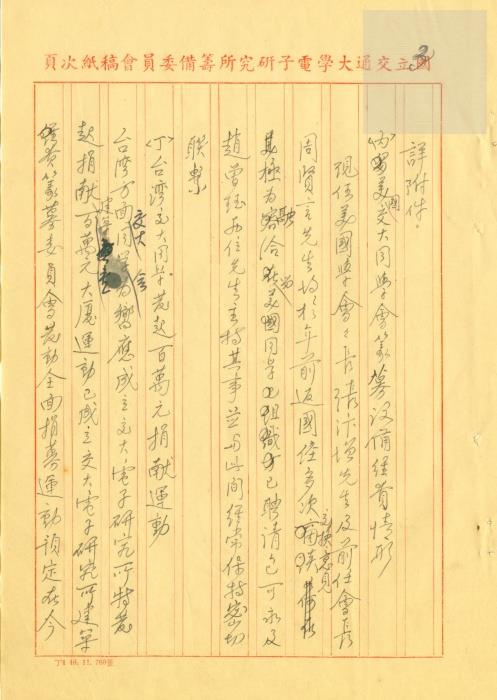 國立交通大學電子研究所籌備委員會稿紙次頁
詳附件。
(丙)美國交大同學會籌募設備經費情形
現任美國同學會會長張汴增先生及前任會長
周賢言先生均於年前返國經多次交換意見
極為融洽在美同學組織已聘請包可永及
趙曾珏兩位先生主持其事並與此間經常保持密切
聯繫
(丁)台灣交大同學發起百萬元捐獻運動
台灣方面交大同學會為響應成立交大電子研究所特發
起捐獻百萬元大廈運動已成立交大電子研究所建築
經費籌募委員會發動全面捐募運動預定在今
丁1 46.11. 700張